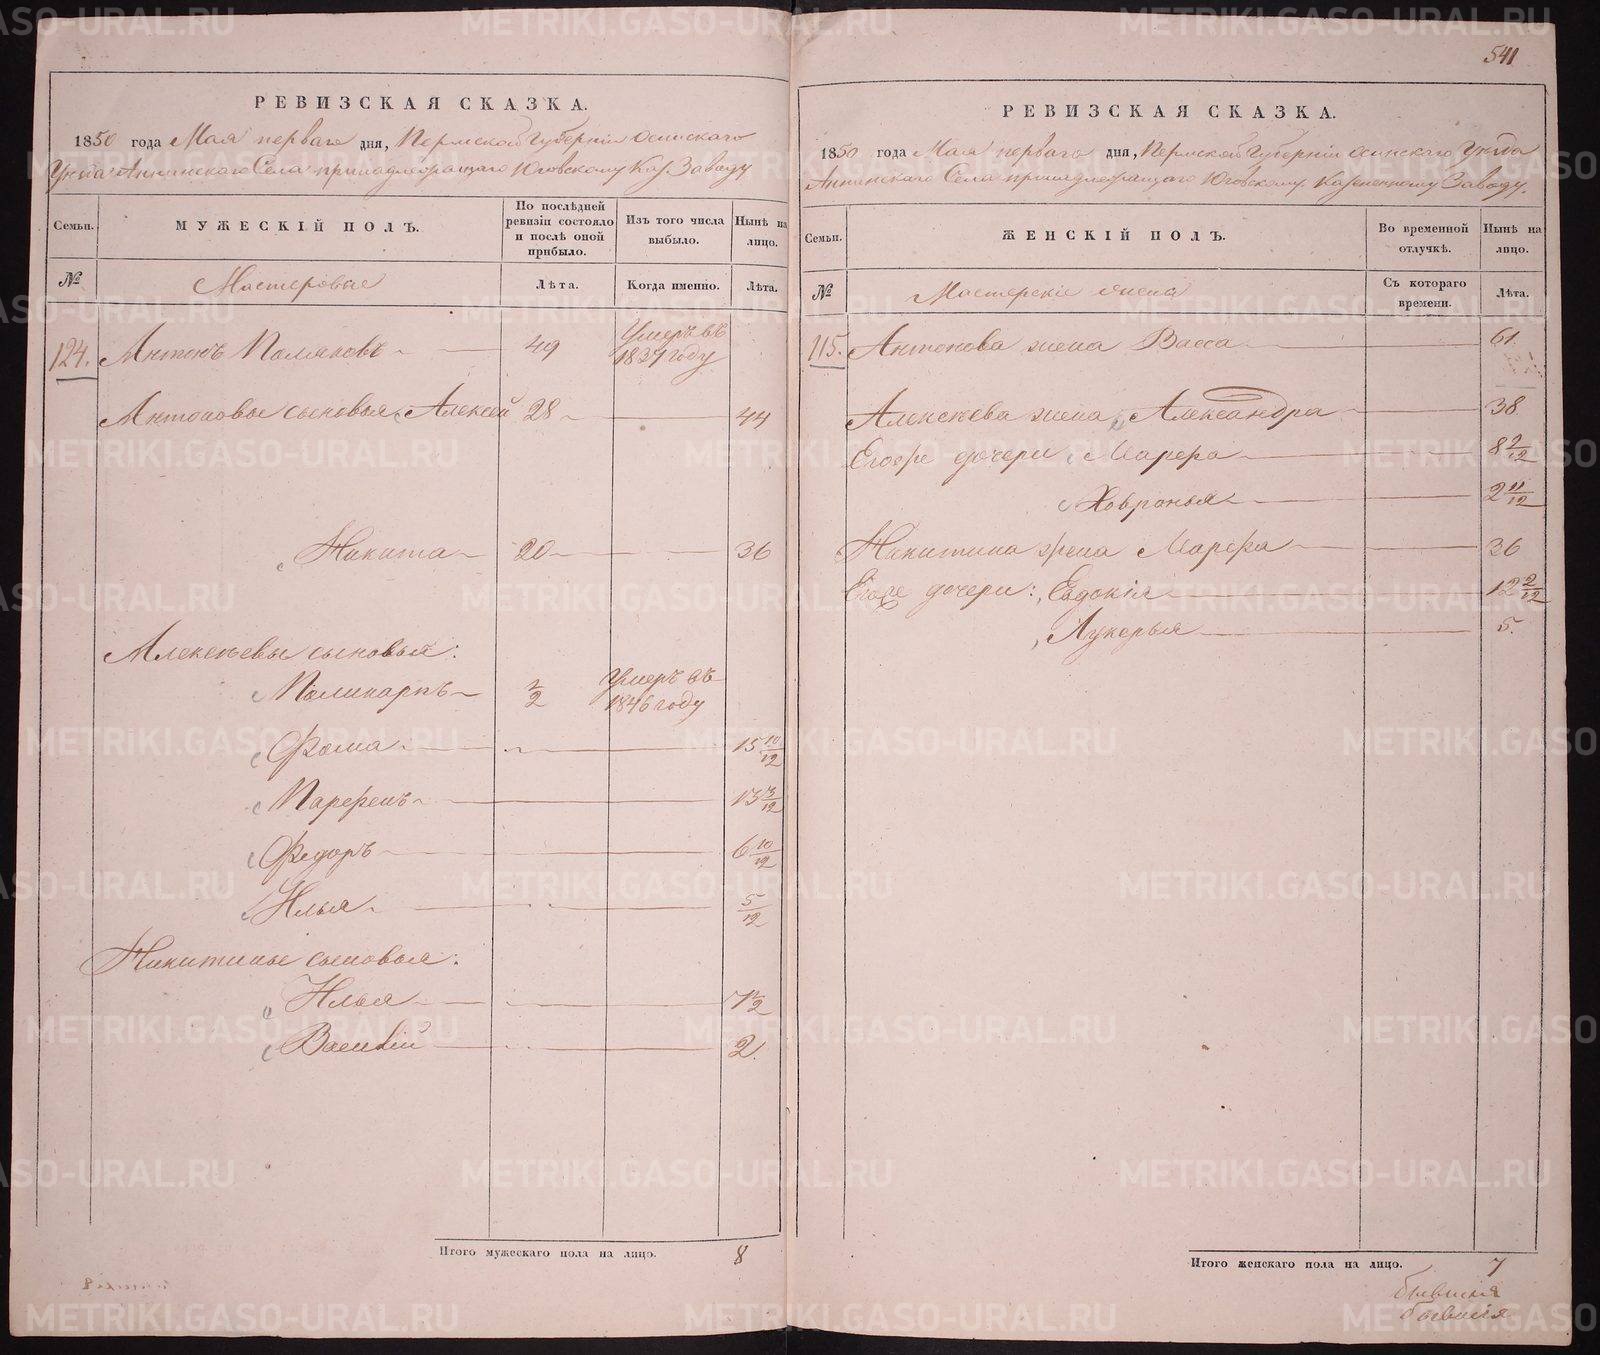 541
РЕВИЗСКАЯ СКАЗКА.
1850 года Мая перваго дня, Пермской Губерніи Осинскаго
Уѣзда Аннинскаго Села принадлежащаго Юговскому Каз. Заводу
Семьи.
МУЖЕСКІЙ ПОЛЪ.
По послѣдней ревизіи состояло и послѣ оной прибыло.
Изъ того числа выбыло.
Нынѣ на лицо.
№
Мастеровые
Лѣта.
Когда именно.
Лѣта.
124. Антонъ Поляковъ 49 Умеръ въ 1837 году
Антоновы сыновья, Алексѣй 28 44
Никита 20 36
Алексѣевы сыновья:
Поликарпъ 1/2 Умеръ въ 1846 году
Фома 15 10/12
Парфенъ 13 3/12
Федоръ 6 10/12
Илья 5/12
Никитины сыновья:
Илья 7 1/2
Василій 2.
Итого мужескаго пола на лицо. 8
РЕВИЗСКАЯ СКАЗКА.
1850 года Мая перваго дня, Пермской Губерніи Осинскаго Уѣзда
Аннинскаго Села принадлежащаго Юговскому Казенному Заводу.
Семьи.
ЖЕНСКІЙ ПОЛЪ.
Во временной отлучкѣ.
Нынѣ на лицо.
№
Мастерскіе жены
Съ котораго времени.
Лѣта.
115. Антонова жена Васса 61.
Алексѣева жена, Александра 38
Егоже дочери, Марфа 8 2/12
Ховронья 2 11/12
Никитина жена Марфа 36
Егоже дочери: Евдокія 12 2/12
Лукерья 5.
Итого женскаго пола на лицо. 7
METRIKI.GASO-URAL.RU